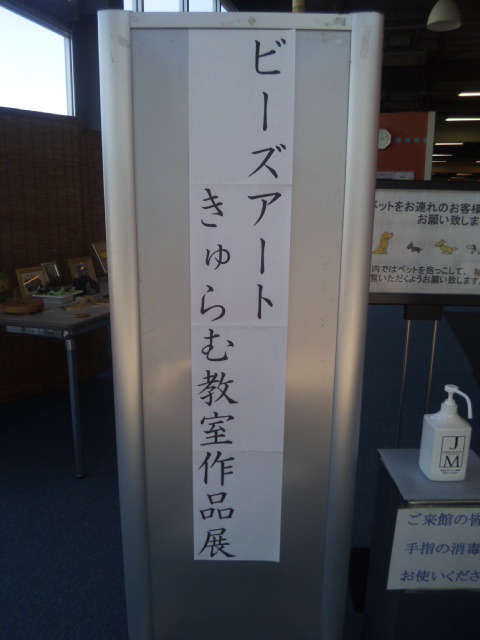 ビーズアート
きゅらむ教室作品展
ペットをお連れのお客様
お願い致しま
内ではペットを抱っこして、
覧いただくようお願い致します
J
M
ご来館の皆
手指の消毒
お使いくださ